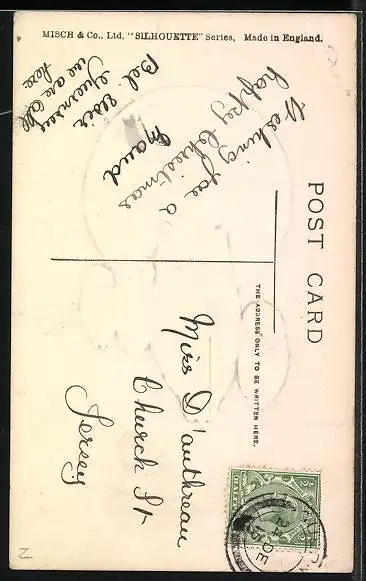 MISCH & Co., Ltd. "SILHOUETTE" Series, Made in England.
POST CARD
THE ADDRESS ONLY TO BE WRITTEN HERE.
Wishing you a
happy Christmas
Maud
we are all
here
Miss D'authreau
Church St
Jersey